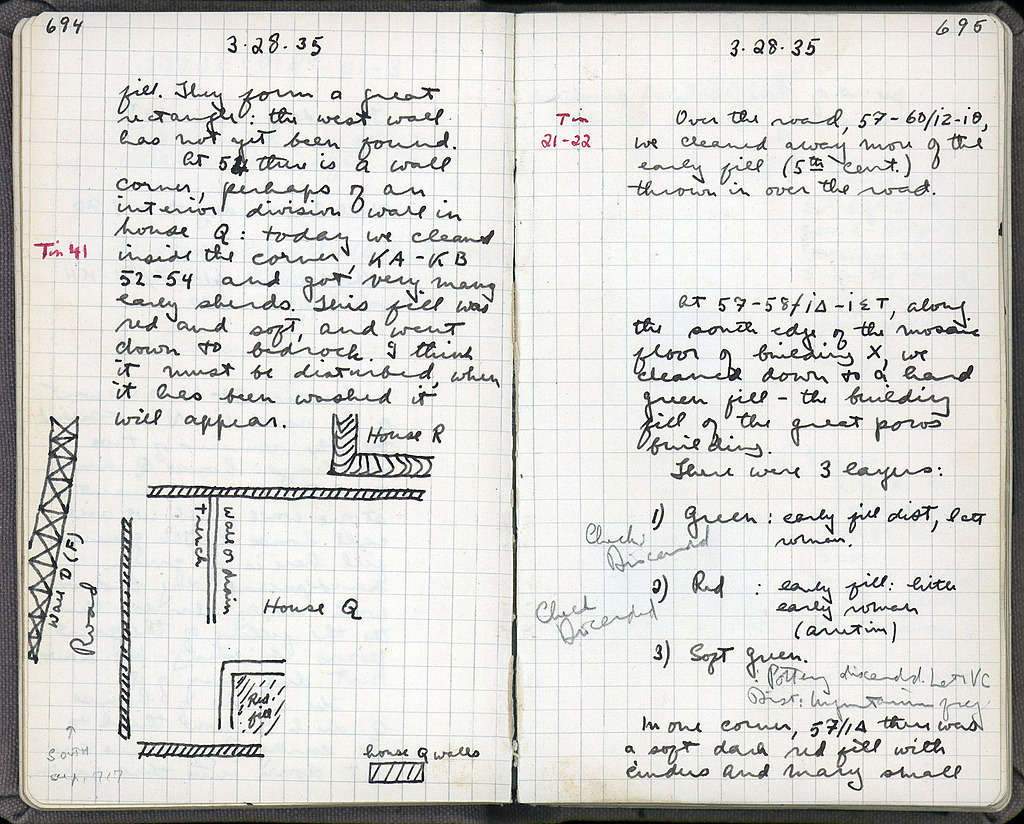 694
3·28·35
fill. They form a great
rectangle: the west wall
has not yet been found.
At 54 there is a wall
corner, perhaps of an
interior division wall in
house Q: today we cleaned
Tin 41
inside the corner, KA-KB
52-54 and got very many
early sherds. This fill was
red and soft, and went
down to bedrock. I think
it must be disturbed, when
it has been washed it
will appear.
House R
trench
wall or drain
Wall D (F)
Road
House Q
Red
fill
South
house Q walls
695
3·28·35
Tin
21-22
Over the road, 57-60/ιζ-ιθ,
we cleaned away more of the
early fill (5th cent.)
thrown in over the road.
At 57-58/ιΔ-ιΣΤ, along
the south edge of the mosaic
floor of building X, we
cleaned down to a hard
green fill - the building
fill of the great poros
building.
There were 3 layers:
1) Green: early fill dist, late
roman.
Check
Discarded
2) Red : early fill: late
early roman
(arretin)
Check
Discarded
3) Soft green.
: Pottery discarded. Late VC
Dist:
In one corner, 57/ιΔ there was
a soft dark red fill with
cinders and many small